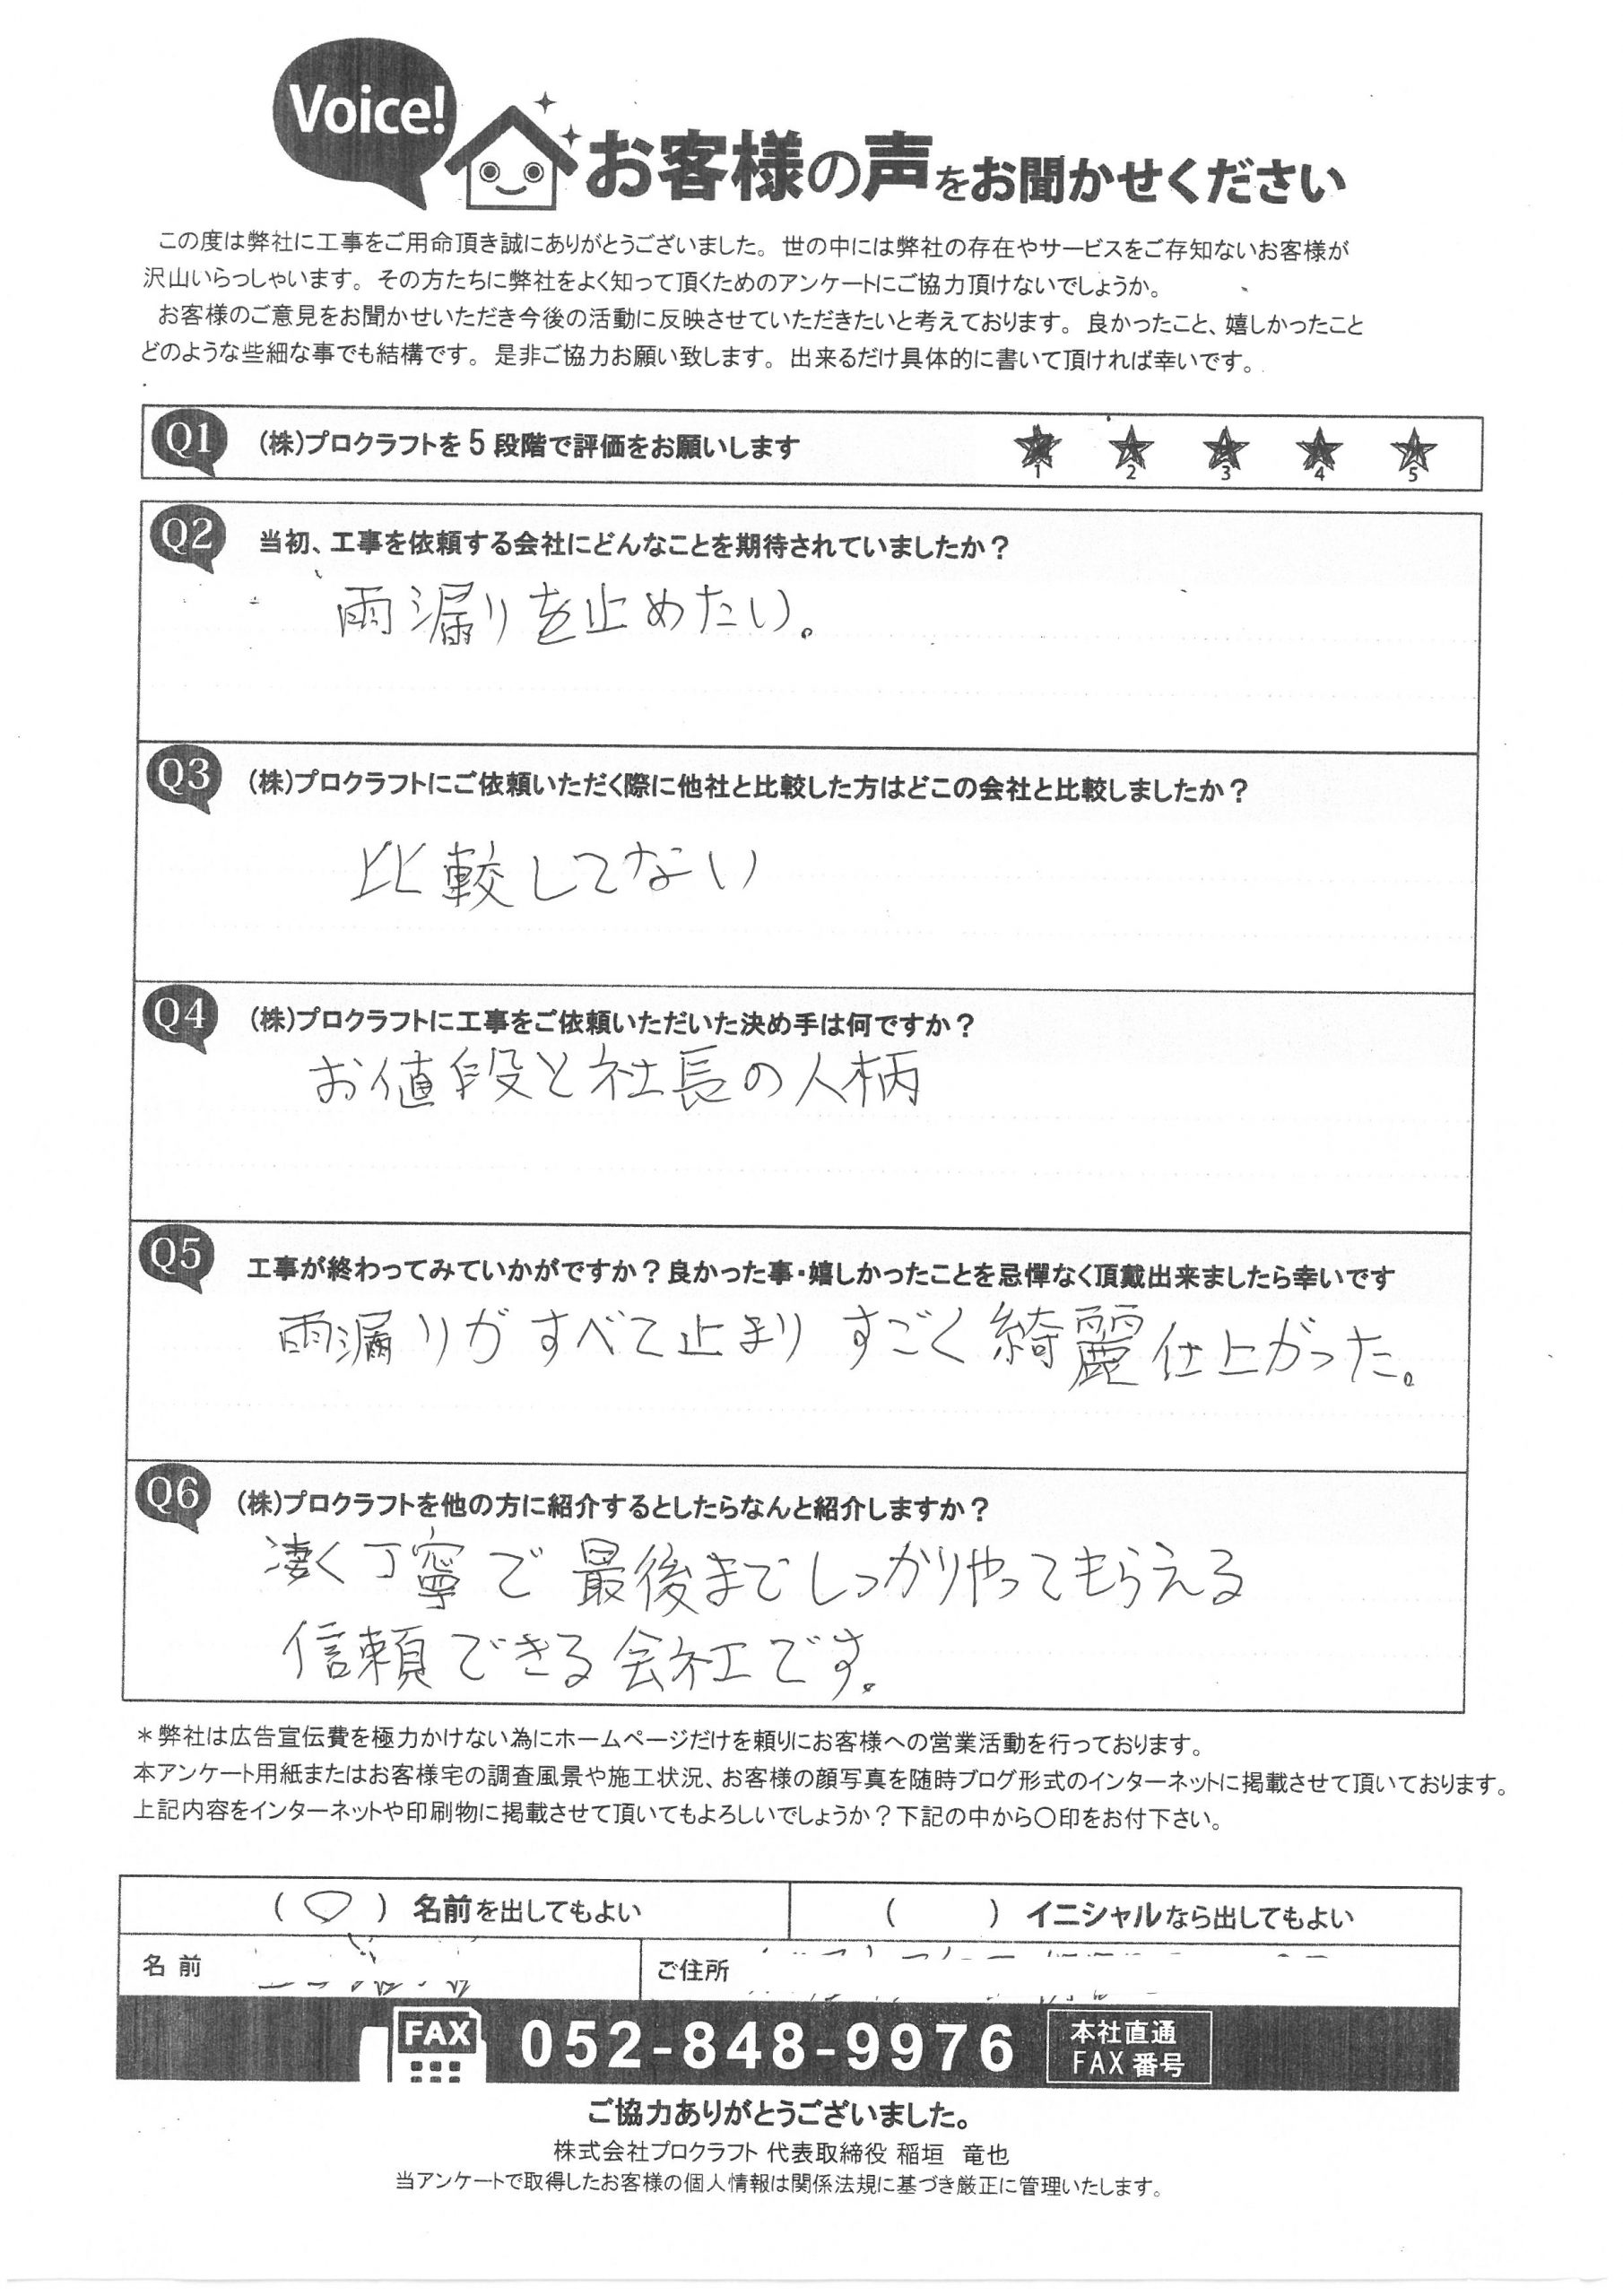 Voice!
お客様の声をお聞かせください
この度は弊社に工事をご用命頂き誠にありがとうございました。世の中には弊社の存在やサービスをご存知ないお客様が
沢山いらっしゃいます。その方たちに弊社をよく知って頂くためのアンケートにご協力頂けないでしょうか。
お客様のご意見をお聞かせいただき今後の活動に反映させていただきたいと考えております。良かったこと、嬉しかったこと
どのような些細な事でも結構です。是非ご協力お願い致します。出来るだけ具体的に書いて頂ければ幸いです。
Q1 (株)プロクラフトを5段階で評価をお願いします ★ ★ ★ ★ ★
1 2 3 4 5
Q2 当初、工事を依頼する会社にどんなことを期待されていましたか？
雨漏りを止めたい。
Q3 (株)プロクラフトにご依頼いただく際に他社と比較した方はどこの会社と比較しましたか？
比較してない
Q4 (株)プロクラフトに工事をご依頼いただいた決め手は何ですか？
お値段と社長の人柄
Q5 工事が終わってみていかがですか？良かった事・嬉しかったことを忌憚なく頂戴出来ましたら幸いです
雨漏りがすべて止まり すごく綺麗仕上がった。
Q6 (株)プロクラフトを他の方に紹介するとしたらなんと紹介しますか？
凄く丁寧で最後までしっかりやってもらえる
信頼できる会社です。
＊弊社は広告宣伝費を極力かけない為にホームページだけを頼りにお客様への営業活動を行っております。
本アンケート用紙またはお客様宅の調査風景や施工状況、お客様の顔写真を随時ブログ形式のインターネットに掲載させて頂いております。
上記内容をインターネットや印刷物に掲載させて頂いてもよろしいでしょうか？下記の中から〇印をお付下さい。
(〇)名前を出してもよい ( )イニシャルなら出してもよい
名前 ご住所
FAX 052-848-9976 本社直通
FAX番号
ご協力ありがとうございました。
株式会社プロクラフト 代表取締役 稲垣 竜也
当アンケートで取得したお客様の個人情報は関係法規に基づき厳正に管理いたします。